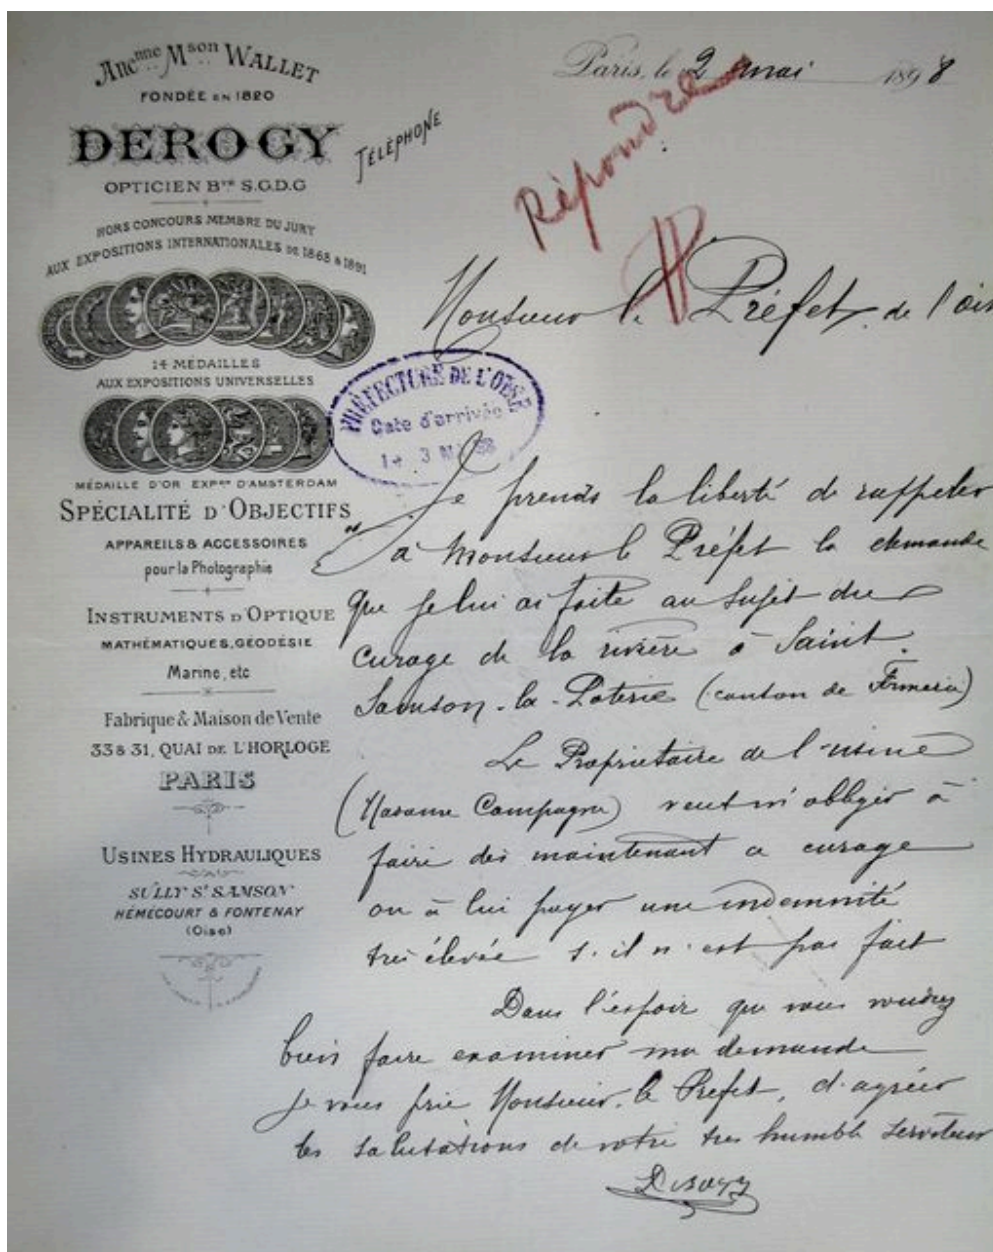 Anc^nne M^son WALLET
FONDÉE EN 1820
DEROGY
OPTICIEN B^TE S.G.D.G
TÉLÉPHONE
HORS CONCOURS MEMBRE DU JURY
AUX EXPOSITIONS INTERNATIONALES DE 1868 & 1891
14 MÉDAILLES
AUX EXPOSITIONS UNIVERSELLES
MÉDAILLE D'OR EXP^ON D'AMSTERDAM
SPÉCIALITÉ D'OBJECTIFS
APPAREILS & ACCESSOIRES
pour la Photographie
INSTRUMENTS D'OPTIQUE
MATHÉMATIQUES, GÉODÉSIE
Marine, etc
Fabrique & Maison de Vente
33 & 31, QUAI DE L'HORLOGE
PARIS
USINES HYDRAULIQUES
SULLY S^T SAMSON
HÉMÉCOURT & FONTENAY
(Oise)
Paris, le 2 mai 1898
Répondre
Monsieur le Préfet de l'ois
PRÉFECTURE DE L'OISE
Date d'arrivée
3 MAI 98
Je prends la liberté de rappeler
à Monsieur le Préfet la demande
que je lui ai faite au sujet du
curage de la rivière à Saint.
Samson-la-Poterie (canton de Formerie)
Le Propriétaire de l'usine
(Campagne) veut m'obliger à
faire dès maintenant ce curage
ou à lui payer une indemnité
très élevée s'il n'est pas fait
Dans l'espoir que vous voudrez
bien faire examiner ma demande
je vous prie Monsieur le Prefet, d'agréer
les salutations de votre très humble serviteur
Derogy